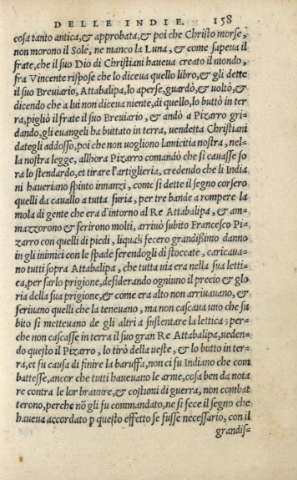 DELLE INDIE. 158
cosa tanto antica, & approbata, & poi che Christo morse,
non morono il Sole, ne manco la Luna, & come sapeua il
frate, che il suo Dio di Christiani haueua creato il mondo,
fra Vincente rispose che lo diceua quello libro, & gli dette
il suo Breuiario, Attabalipa, lo aperse, guardò, & uoltò, &
dicendo che a lui non diceua niente, di quello, lo buttò in ter
ra, pigliò il frate il suo Breuiario, & andò a Pizarro gri-
dando, gli euangeli ha buttato in terra, uendetta Christiani
dategli addosso, poi che non uogliono lamicitia nostra, nel-
la nostra legge, allhora Pizarro comandò che si cauasse fo
ra lo stendardo, et tirare l'artiglieria, credendo che li India
ni haueriano spinto innanzi, come si dette il segno corsero
quelli da cauallo a tutta furia, per tre bande a rompere la
mola di gente che era d'intorno al Re Attabalipa, & am-
mazzorono & ferirono molti, arriuò subito Francesco Pi-
zarro con quelli di piedi, liquali fecero grandissimo danno
in gli inimici con le spade ferendogli di stoccate, caricaua-
no tutti sopra Attabalipa, che tutta uia era nella sua letti-
ca, per farlo prigione, desiderando ogniuno il precio & glo
ria della sua prigione, & come era alto non arriuauano, &
feriuano quelli che la teneuano, ma non cascaua uno che su
bito si metteuano de gli altri a sustentare la lettica: per-
che non cascasse in terra il suo gran Re Attabalipa, ueden-
do questo il Pizarro, lo tirò della ueste, & lo butto in ter-
ra, et fu causa di finire la baruffa, non ci fu Indiano che com
battesse, ancor che tutti haueuano le arme, cosa ben da nota
re contra le lor brauure, & costumi di guerra, non combat
terono, perche nõ gli fu commandato, ne si fece il segno che
haueua accordato ꝑ questo effetto se fusse necessario, con il
grandis-